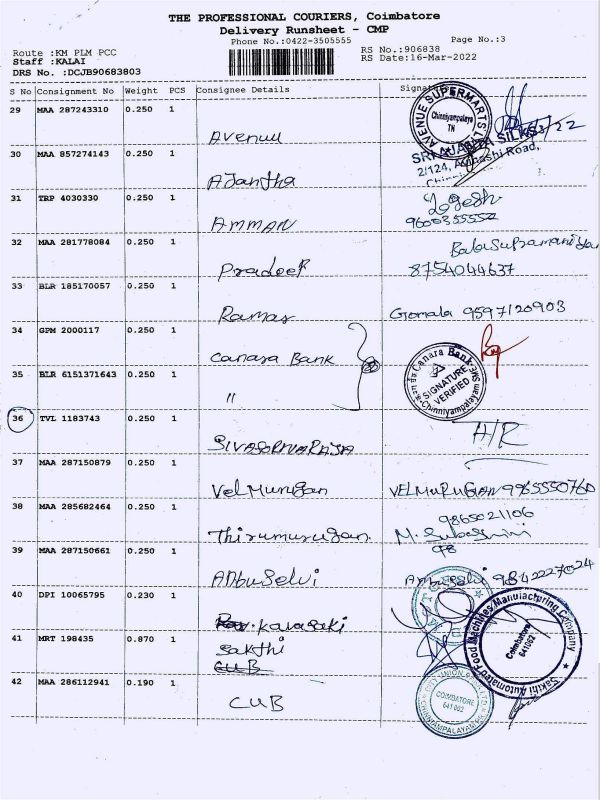 THE PROFESSIONAL COURIERS, Coimbatore
Delivery Runsheet - CMP
Phone No.:0422-3505555 Page No.:3
Route :KM PLM PCC RS No.:906838
Staff :KALAI RS Date:16-Mar-2022
DRS No. :DCJB90683803
S No Consignment No Weight PCS Consignee Details
29 MAA 287243310 0.250 1 Avenuu
AVENUE SUPERMARTS
Chinniyampalaya
TN
30 MAA 857274143 0.250 1 AJantha
2/124, Road,
31 TRP 4030330 0.250 1 AMMAN
Logesh
9600355552
32 MAA 281778084 0.250 1 Pradeep
8754044637
33 BLR 185170057 0.250 1 Ramar
Gomala 9597120903
34 GPM 2000117 0.250 1 Canara Bank
35 BLR 6151371643 0.250 1 "
Canara Bank
SIGNATURE
VERIFIED
Chinniyampalayam
36 TVL 1183743 0.250 1 SIVASORNARAJA
H/R
37 MAA 287150879 0.250 1 Vel Murugan
VELMURUGAN 9965550760
38 MAA 285682464 0.250 1 Thirumurugan
9865021106
98
39 MAA 287150661 0.250 1 ANbuSelvi
Anbuselvi 9842227024
40 DPI 10065795 0.230 1 Karasaki
41 MRT 198435 0.870 1 Sakthi
CUB
Sakthi Automated Food Machines Manufacturing Company
Coimbatore
641062
42 MAA 286112941 0.190 1 CUB
COIMBATORE
641 062